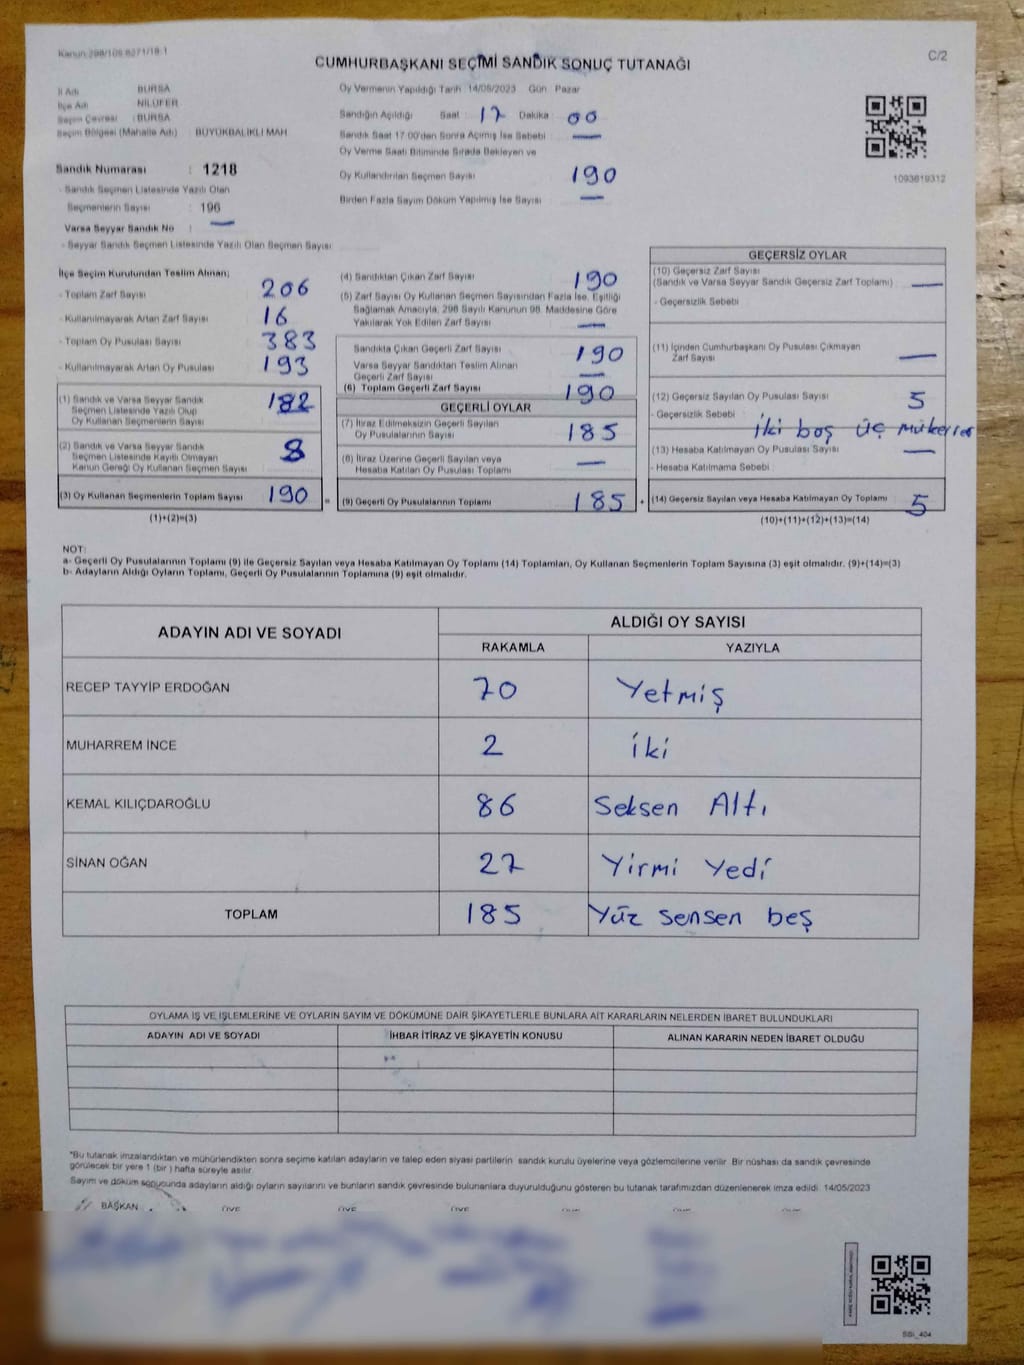 Kanun 298/109 6271/18.1
C/2
CUMHURBAŞKANI SEÇİMİ SANDIK SONUÇ TUTANAĞI
İl Adı : BURSA
İlçe Adı : NİLÜFER
Seçim Çevresi : BURSA
Seçim Bölgesi (Mahalle Adı) : BÜYÜKBALIKLI MAH
Sandık Numarası : 1218
- Sandık Seçmen Listesinde Yazılı Olan
Seçmenlerin Sayısı : 196
Varsa Seyyar Sandık No : —
- Seyyar Sandık Seçmen Listesinde Yazılı Olan Seçmen Sayısı
Oy Vermenin Yapıldığı Tarih 14/05/2023 Gün Pazar
Sandığın Açıldığı Saat 17 Dakika 00
Sandık Saat 17.00'den Sonra Açılmış İse Sebebi —
Oy Verme Saati Bitiminde Sırada Bekleyen ve
Oy Kullandırılan Seçmen Sayısı 190
Birden Fazla Sayım Döküm Yapılmış İse Sayısı —
1093619312
İlçe Seçim Kurulundan Teslim Alınan;
- Toplam Zarf Sayısı 206
- Kullanılmayarak Artan Zarf Sayısı 16
- Toplam Oy Pusulası Sayısı 383
- Kullanılmayarak Artan Oy Pusulası 193
(1) Sandık ve Varsa Seyyar Sandık
Seçmen Listesinde Yazılı Olup
Oy Kullanan Seçmenlerin Sayısı 182
(2) Sandık ve Varsa Seyyar Sandık
Seçmen Listesinde Kayıtlı Olmayan
Kanun Gereği Oy Kullanan Seçmen Sayısı 8
(3) Oy Kullanan Seçmenlerin Toplam Sayısı 190
(1)+(2)=(3)
(4) Sandıktan Çıkan Zarf Sayısı 190
(5) Zarf Sayısı Oy Kullanan Seçmen Sayısından Fazla İse, Eşitliği
Sağlamak Amacıyla, 298 Sayılı Kanunun 98. Maddesine Göre
Yakılarak Yok Edilen Zarf Sayısı —
Sandıkta Çıkan Geçerli Zarf Sayısı 190
Varsa Seyyar Sandıktan Teslim Alınan
Geçerli Zarf Sayısı —
(6) Toplam Geçerli Zarf Sayısı 190
GEÇERLİ OYLAR
(7) İtiraz Edilmeksizin Geçerli Sayılan
Oy Pusulalarının Sayısı 185
(8) İtiraz Üzerine Geçerli Sayılan veya
Hesaba Katılan Oy Pusulası Toplamı —
= (9) Geçerli Oy Pusulalarının Toplamı 185 +
GEÇERSİZ OYLAR
(10) Geçersiz Zarf Sayısı
(Sandık ve Varsa Seyyar Sandık Geçersiz Zarf Toplamı) —
- Geçersizlik Sebebi
(11) İçinden Cumhurbaşkanı Oy Pusulası Çıkmayan
Zarf Sayısı —
(12) Geçersiz Sayılan Oy Pusulası Sayısı 5
- Geçersizlik Sebebi : iki boş üç mükerrer
(13) Hesaba Katılmayan Oy Pusulası Sayısı —
- Hesaba Katılmama Sebebi
(14) Geçersiz Sayılan veya Hesaba Katılmayan Oy Toplamı 5
(10)+(11)+(12)+(13)=(14)
NOT:
a- Geçerli Oy Pusulalarının Toplamı (9) ile Geçersiz Sayılan veya Hesaba Katılmayan Oy Toplamı (14) Toplamları, Oy Kullanan Seçmenlerin Toplam Sayısına (3) eşit olmalıdır. (9)+(14)=(3)
b- Adayların Aldığı Oyların Toplamı, Geçerli Oy Pusulalarının Toplamına (9) eşit olmalıdır.
ADAYIN ADI VE SOYADI ALDIĞI OY SAYISI
RAKAMLA YAZIYLA
RECEP TAYYİP ERDOĞAN 70 Yetmiş
MUHARREM İNCE 2 iki
KEMAL KILIÇDAROĞLU 86 Seksen Altı
SİNAN OĞAN 27 Yirmi Yedi
TOPLAM 185 Yüz sensen beş
OYLAMA İŞ VE İŞLEMLERİNE VE OYLARIN SAYIM VE DÖKÜMÜNE DAİR ŞİKAYETLERLE BUNLARA AİT KARARLARIN NELERDEN İBARET BULUNDUKLARI
ADAYIN ADI VE SOYADI İHBAR İTİRAZ VE ŞİKAYETİN KONUSU ALINAN KARARIN NEDEN İBARET OLDUĞU
*Bu tutanak imzalandıktan ve mühürlendikten sonra seçime katılan adayların ve talep eden siyasi partilerin sandık kurulu üyelerine veya gözlemcilerine verilir. Bir nüshası da sandık çevresinde
görülecek bir yere 1 (bir) hafta süreyle asılır.
Sayım ve döküm sonucunda adayların aldığı oyların sayılarını ve bunların sandık çevresinde bulunanlara duyurulduğunu gösteren bu tutanak tarafımızdan düzenlenerek imza edildi. 14/05/2023
BAŞKAN ÜYE ÜYE ÜYE
SBI_404